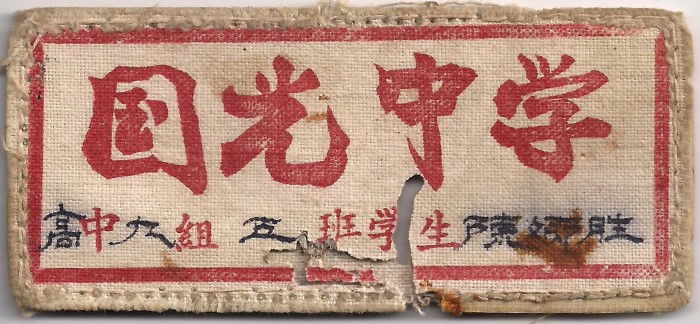 国光中学
高中九组 五 班学生陳 胜